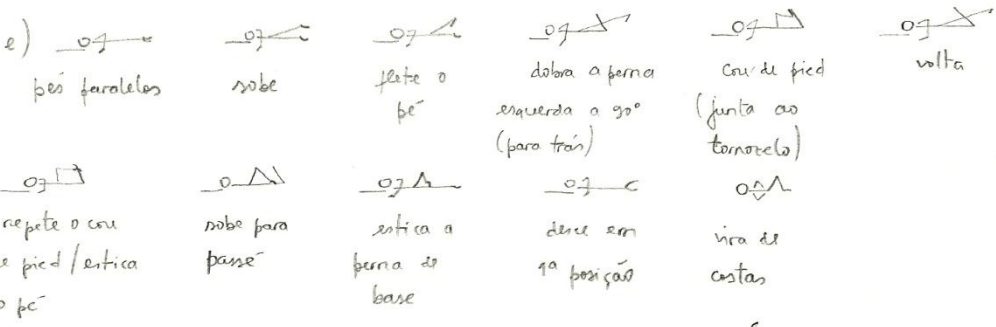 e)
pés paralelos
sobe
flete o
pé
dobra a perna
esquerda a 90º
(para trás)
cou de pied
(junta ao
tornozelo)
volta
repete o cou
e pied / estica
o pé
sobe para
passé
estica a
perna de
base
desce em
1ª posição
vira de
costas